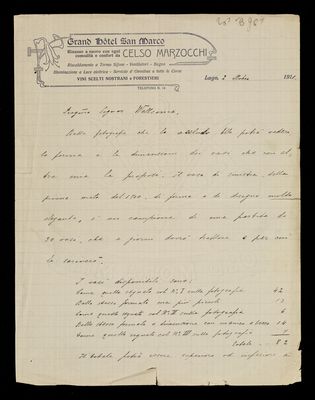 Grand Hôtel San Marco
Rimesso a nuovo con ogni
comodità e confort da CELSO MARZOCCHI
Riscaldamento a Termo Sifone - Ventilatori - Bagno
Illuminazione a Luce elettrica - Servizio d'Omnibus a tutte le Corse
VINI SCELTI NOSTRANI e FORESTIERI
TELEFONO N. 14
Lugo, 2 191
Signor
Nella fotografia che le potrà vedere
la forma e la dimensione dei vasi che con al,
tra mia le proposi. Il vaso di, della
prima metà del 1500, di forma e di disegno molto
elegante, è un campione di una partita di
20 vasi, che a giorni dovrò e per cui
le
I vasi disponibili sono;
Come quello segnato col N. I nella fotografia 42
Dello stesso formato ma più piccoli 13
Come quello segnato col N. II nella fotografia 6
Dello stesso formato e dimensione con 14
Come quello segnato col N. III nella fotografia 7
Totale 82
Il totale potrà essere superiore od inferiore di